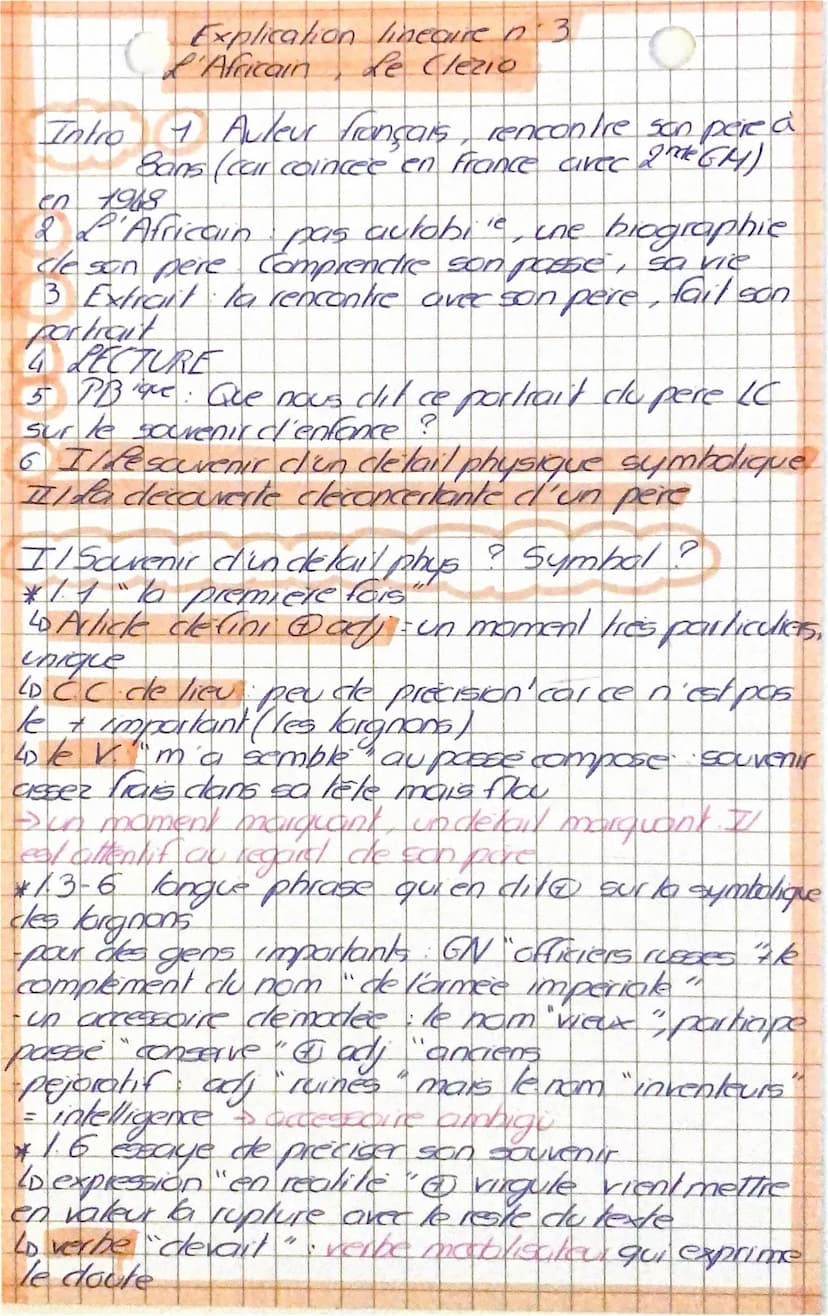 Explication lineaire n°3
L'Africain, Le Clezio
Intro 1 Auteur français, rencontre son père à
8ans (car coincée en France avec 2nde GM)
en 1948
2 L'Africain : pas autobi ie, une biographie
de son père. Comprendre son passé, sa vie
3 Extrait : la rencontre avec son père, fait son
portrait
4 LECTURE
5 PB ique : Que nous dit ce portrait du père LC
sur le souvenir d'enfance ?
6 I/ Le souvenir d'un détail physique symbolique
II/ La découverte déconcertante d'un père
I/ Souvenir d'un détail phys ? Symbol ?
* l.1 "la première fois"
↳ Article défini ⊕ adj = un moment très particuliers,
unique
↳ C.C. de lieu : peu de précision car ce n'est pas
le + important (les lorgnons)
↳ le V. "m'a semblé" au passé composé : souvenir
assez frais dans sa tête mais flou
→ un moment marquant, un détail marquant. Il
est attentif au regard de son père
* l.3-6 longue phrase qui en dit ⊕ sur la symbolique
des lorgnons
- pour des gens importants : GN "officiers russes" + le
complément du nom "de l'armée impériale"
- un accessoire démodée : le nom "vieux", participe
passé "conservé" ⊕ adj "anciens
- péjoratif : adj "ruinés" mais le nom "inventeurs"
= intelligence → accessoire ambigü
* l.6 essaye de préciser son souvenir
↳ expression "en réalité" ⊕ virgule vient mettre
en valeur la rupture avec le reste du texte
↳ verbe "devait" : verbe modalisateur qui exprime
le doute